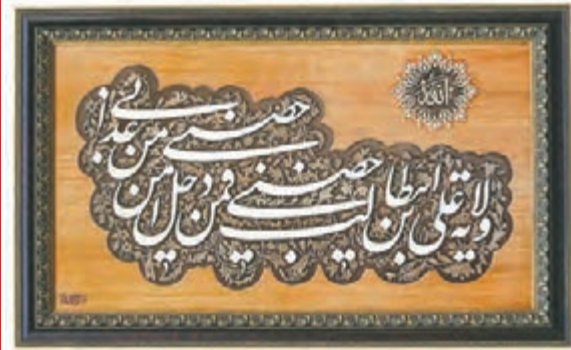 الله
ولایة علی بن ابیطالب حصنی فمن دخل
حصنی امن من عذابی